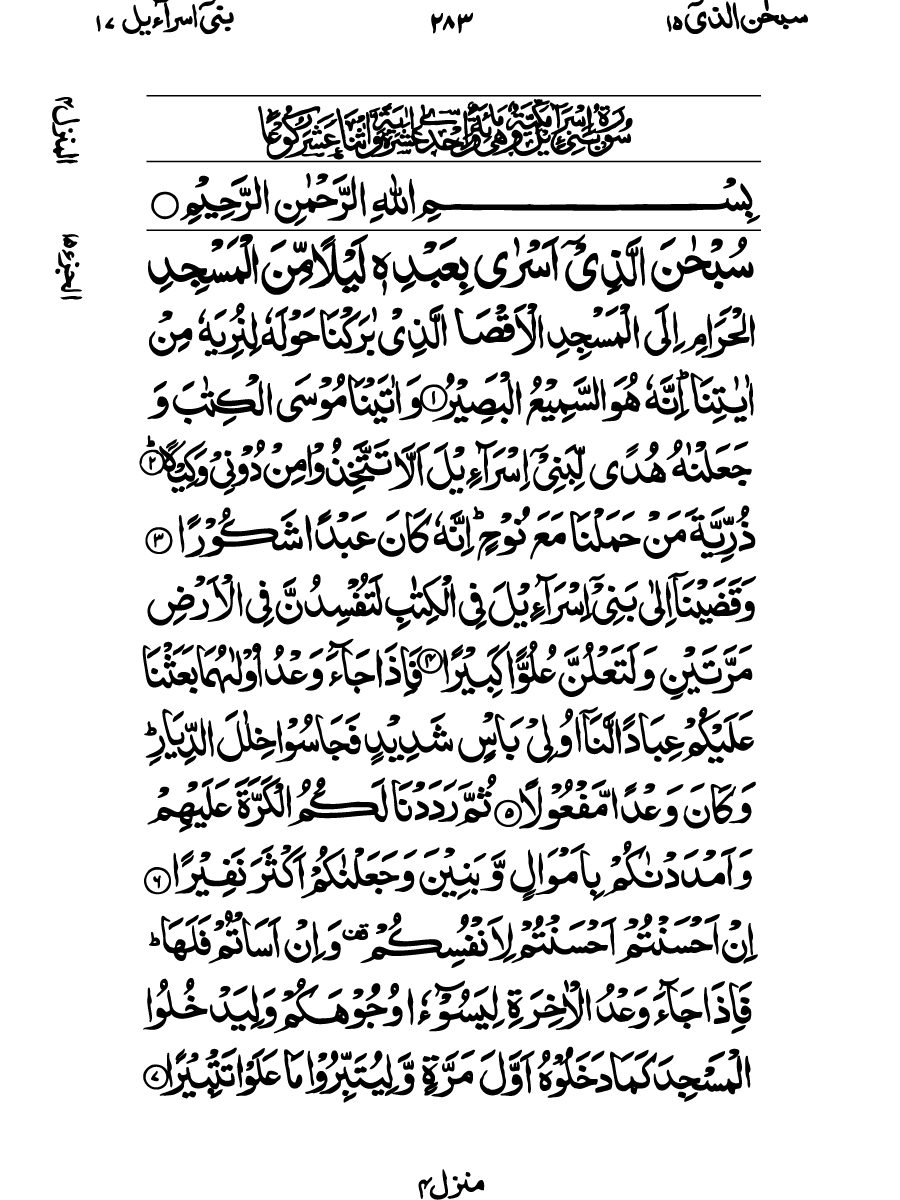 سبحٰن الذیٓ ۱۵
۲۸۳
بنیٓ اسرآءیل ۱۷
المنزل۴
الجزء۱۵
سُوْرَةُ بَنِيْٓ اِسْرَآءِيْلَ مَكِّيَّةٌ وَّهِيَ مِائَةٌ وَّاِحْدٰى عَشْرَةَ اٰيَةً وَّاثْنَا عَشَرَ رُكُوْعًا
بِسْمِ اللهِ الرَّحْمٰنِ الرَّحِيْمِ ○
سُبْحٰنَ الَّذِيْٓ اَسْرٰى بِعَبْدِهٖ لَيْلًا مِّنَ الْمَسْجِدِ
الْحَرَامِ اِلَى الْمَسْجِدِ الْاَقْصَا الَّذِيْ بٰرَكْنَا حَوْلَهٗ لِنُرِيَهٗ مِنْ
اٰيٰتِنَا ؕ اِنَّهٗ هُوَ السَّمِيْعُ الْبَصِيْرُ ۱ وَ اٰتَيْنَا مُوْسَى الْكِتٰبَ وَ
جَعَلْنٰهُ هُدًى لِّبَنِيْٓ اِسْرَآءِيْلَ اَلَّا تَتَّخِذُوْا مِنْ دُوْنِيْ وَكِيْلًا ؕ ۲
ذُرِّيَّةَ مَنْ حَمَلْنَا مَعَ نُوْحٍ ؕ اِنَّهٗ كَانَ عَبْدًا شَكُوْرًا ۳
وَقَضَيْنَآ اِلٰى بَنِيْٓ اِسْرَآءِيْلَ فِي الْكِتٰبِ لَتُفْسِدُنَّ فِي الْاَرْضِ
مَرَّتَيْنِ وَ لَتَعْلُنَّ عُلُوًّا كَبِيْرًا ۴ فَاِذَا جَآءَ وَعْدُ اُوْلٰىهُمَا بَعَثْنَا
عَلَيْكُمْ عِبَادًا لَّنَآ اُولِيْ بَاْسٍ شَدِيْدٍ فَجَاسُوْا خِلٰلَ الدِّيَارِ ؕ
وَ كَانَ وَعْدًا مَّفْعُوْلًا ۵ ثُمَّ رَدَدْنَا لَكُمُ الْكَرَّةَ عَلَيْهِمْ
وَ اَمْدَدْنٰكُمْ بِاَمْوَالٍ وَّ بَنِيْنَ وَ جَعَلْنٰكُمْ اَكْثَرَ نَفِيْرًا ۶
اِنْ اَحْسَنْتُمْ اَحْسَنْتُمْ لِاَنْفُسِكُمْ قف وَ اِنْ اَسَاْتُمْ فَلَهَا ؕ
فَاِذَا جَآءَ وَعْدُ الْاٰخِرَةِ لِيَسُوْٓءٗا وُجُوْهَكُمْ وَ لِيَدْخُلُوا
الْمَسْجِدَ كَمَا دَخَلُوْهُ اَوَّلَ مَرَّةٍ وَّ لِيُتَبِّرُوْا مَا عَلَوْا تَتْبِيْرًا ۷
منزل۴